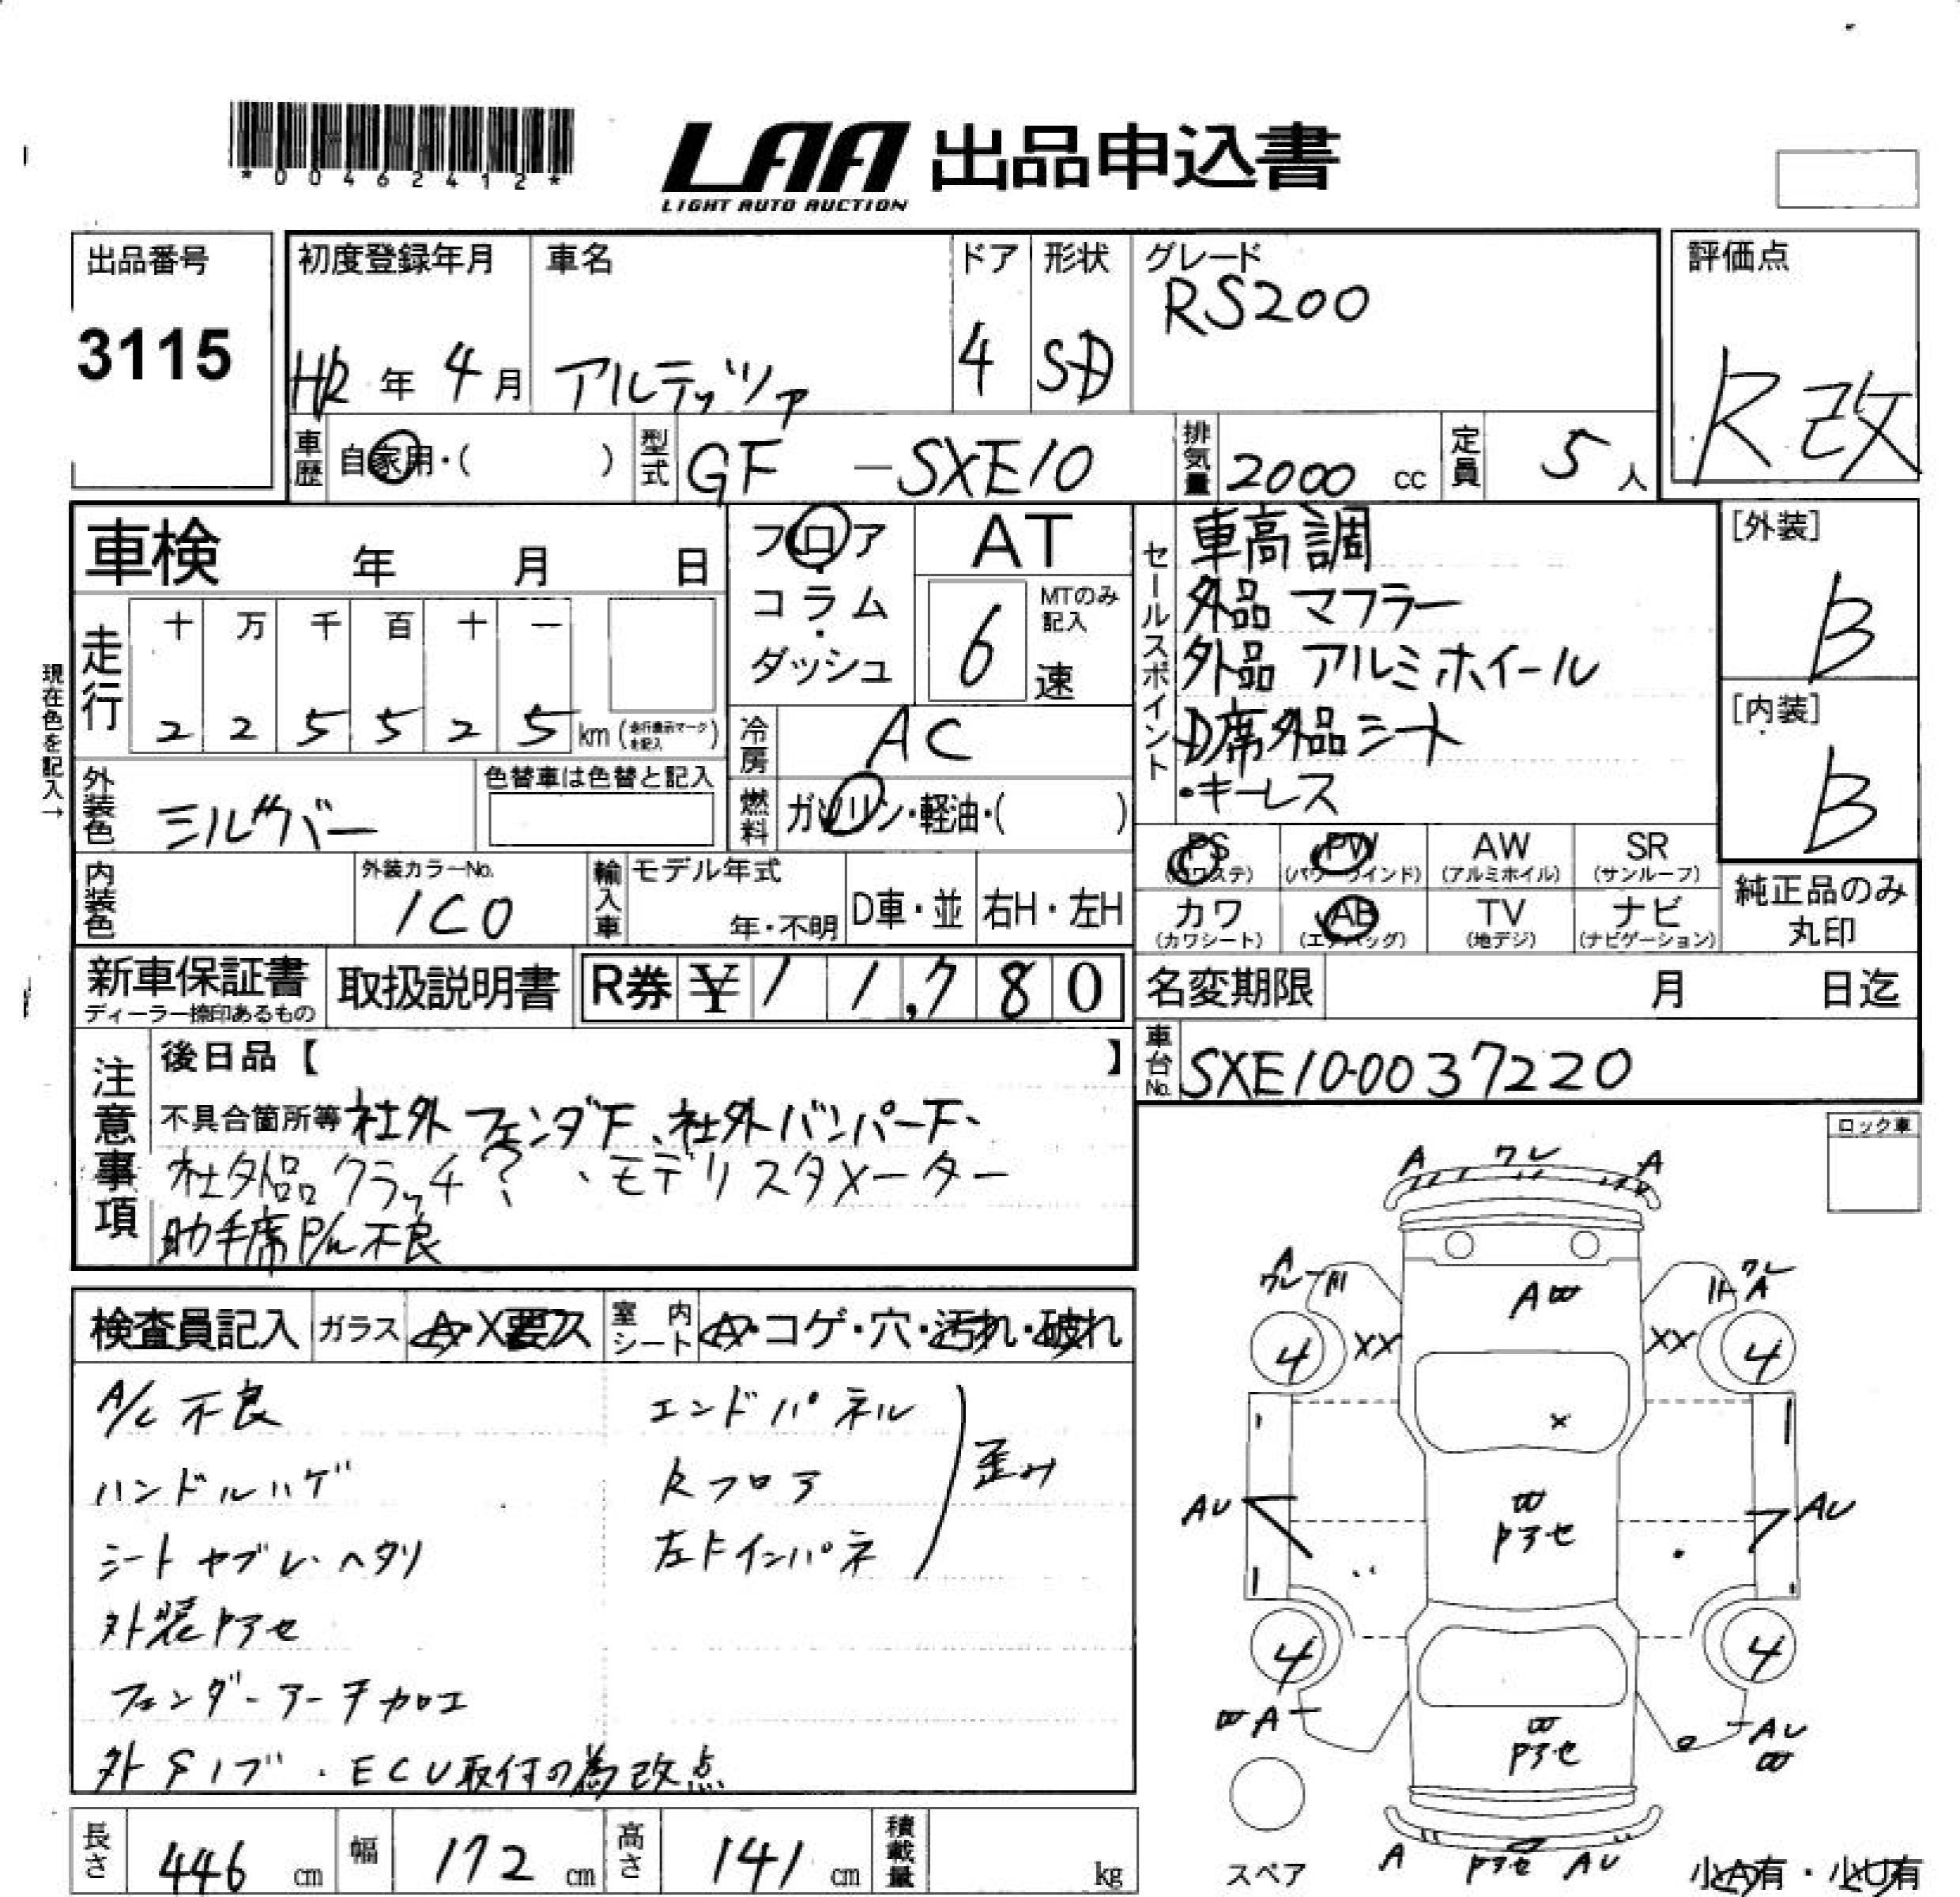 *00462412*
LAA 出品申込書
LIGHT AUTO AUCTION
出品番号
3115
初度登録年月
H12年 4月
車名
アルテッツァ
ドア
4
形状
SD
グレード
RS200
評価点
R改
車歴 自家用・( )
型式 GF - SXE10
排気量 2000 cc
定員 5 人
車検 年 月 日
フロア・コラム・ダッシュ
AT
6 MTのみ記入 速
セールスポイント
車高調
外品 マフラー
外品 アルミホイール
D席外品シート
・キーレス
[外装]
B
[内装]
B
現在色を記入→
走行
十 万 千 百 十 一
2 2 5 5 2 5 km (走行表示マークを記入)
冷房 AC
燃料 ガソリン・軽油・( )
外装色 シルバー
色替車は色替と記入
PS (パワステ) PW (パワーウインド) AW (アルミホイル) SR (サンルーフ)
カワ (カワシート) AB (エアバッグ) TV (地デジ) ナビ (ナビゲーション)
純正品のみ丸印
内装色
外装カラーNo.
1C0
輸入車 モデル年式 年・不明 D車・並 右H・左H
新車保証書
ディーラー捺印あるもの
取扱説明書
R券 ¥11,780
名変期限 月 日迄
車台No. SXE10-0037220
注意事項
後日品【 】
不具合箇所等 社外フェンダF、社外バンパーF、
社外品クラッチ?、モデリスタメーター
助手席P/w不良
ロック車
検査員記入 ガラス A・X要ス 室内シート A・コゲ・穴・汚れ・破れ
A/C 不良
ハンドルハゲ
シートヤブレ・ヘタリ
外装アセ
フェンダーアーチ加工
外タイプ・ECU取付の為改点
エンドパネル
Rフロア
左Fインパネ
歪み
A ワレ A
A
ワレ
ワレ
A
A
4 XX XX 4
×
AU AU
アセ
4 4
A
アセ
AU
スペア
A アセ AU
小A有・小U有
長さ 446 cm
幅 172 cm
高さ 141 cm
積載量 kg